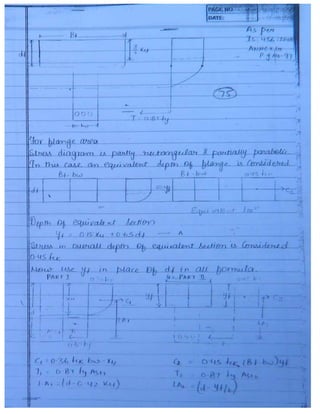 PAGE NO.
DATE:
As per
IS 456:2000
Bf
df
3/7 xu
bw
T = 0.87 fy
75
For flange area
Stress diagram is partly rectangular & partially parabolic
In this case an equivalent depth of flange is considered
Bf
Bf-bw
0.45 fck
df
Equivalent
Depth of equivalent section
yf = 0.15 xu + 0.65 df — A
Stress in overall depth of equivalent section is considered
0.45 fck
Now use yf in place of df in all formula.
PART I
PART II
C1 = 0.36 fck bw xu
T1 = 0.87 fy Ast1
LA1 = (d-0.42 xu)
C2 = 0.45 fck (Bf-bw) yf
T2 = 0.87 fy Ast2
LA2 = (d-yf/2)